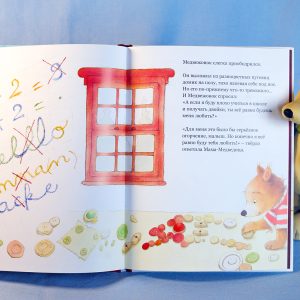 2 =
+ 2 =
Медвежонок слегка приободрился.
Он выложил из разноцветных пуговиц
домик на полу, тихо напевая себе под нос.
Но его по-прежнему что-то тревожило...
И Медвежонок спросил:
«А если я буду плохо учиться в школе
и получать двойки, ты всё равно будешь
меня любить?»
«Для меня это было бы серьёзное
огорчение, малыш. Но конечно я всё
равно буду тебя любить!» — твёрдо
ответила Мама-Медведица.